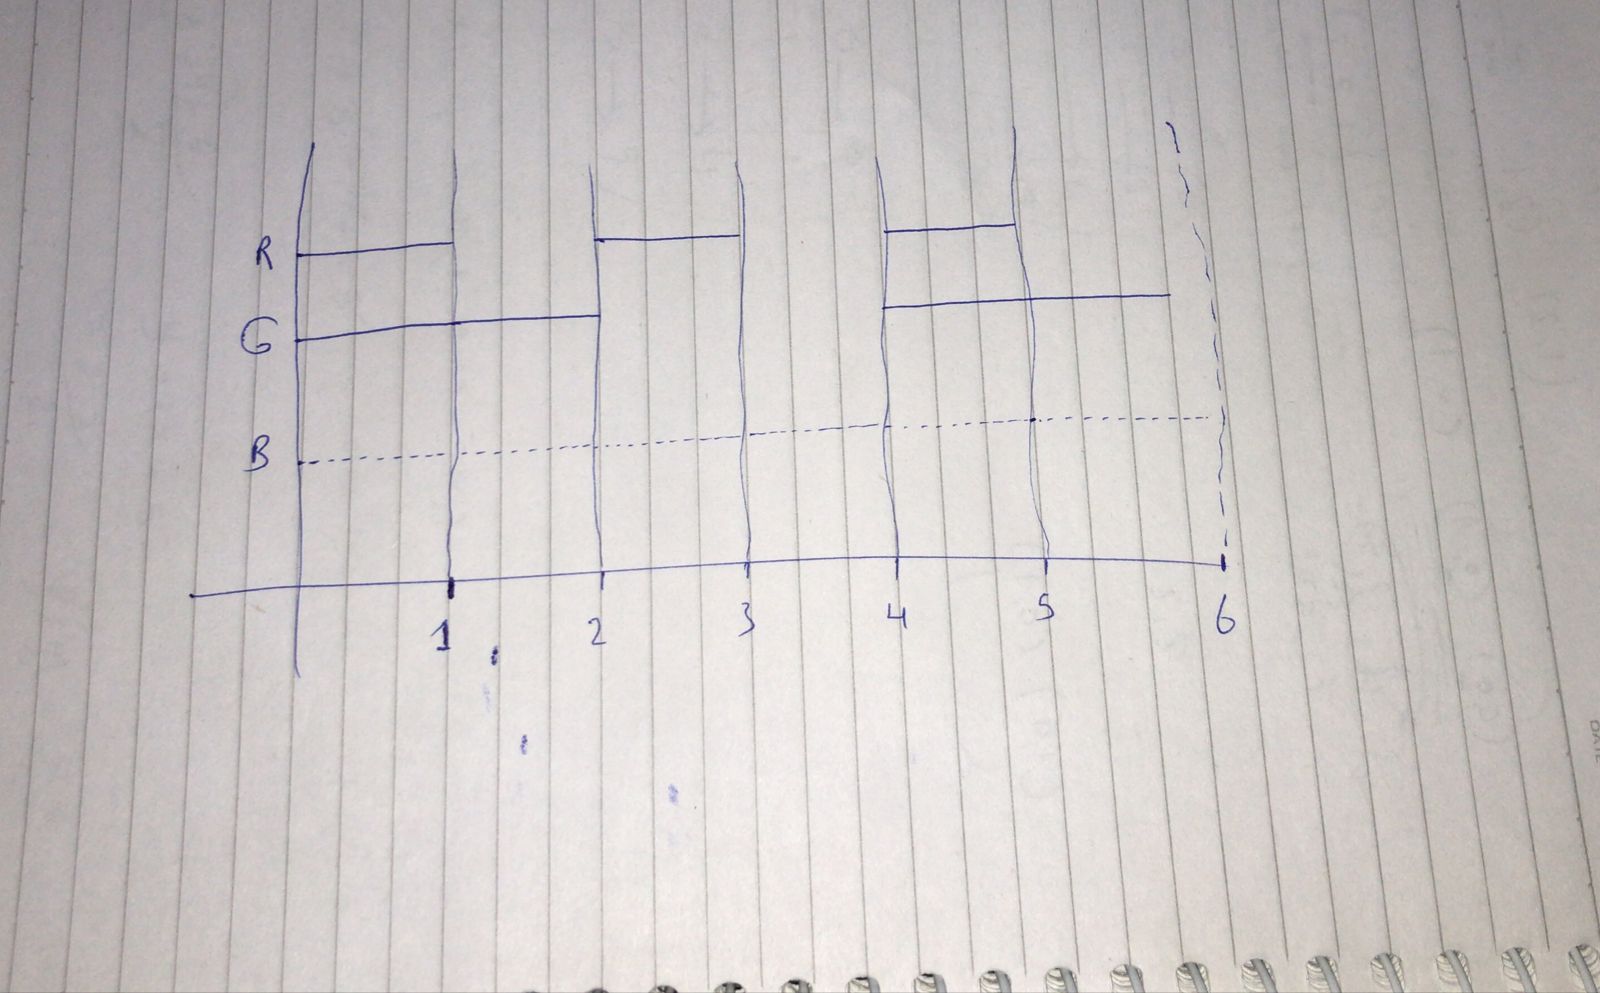 R
G
B
1 2 3 4 5 6
DATE